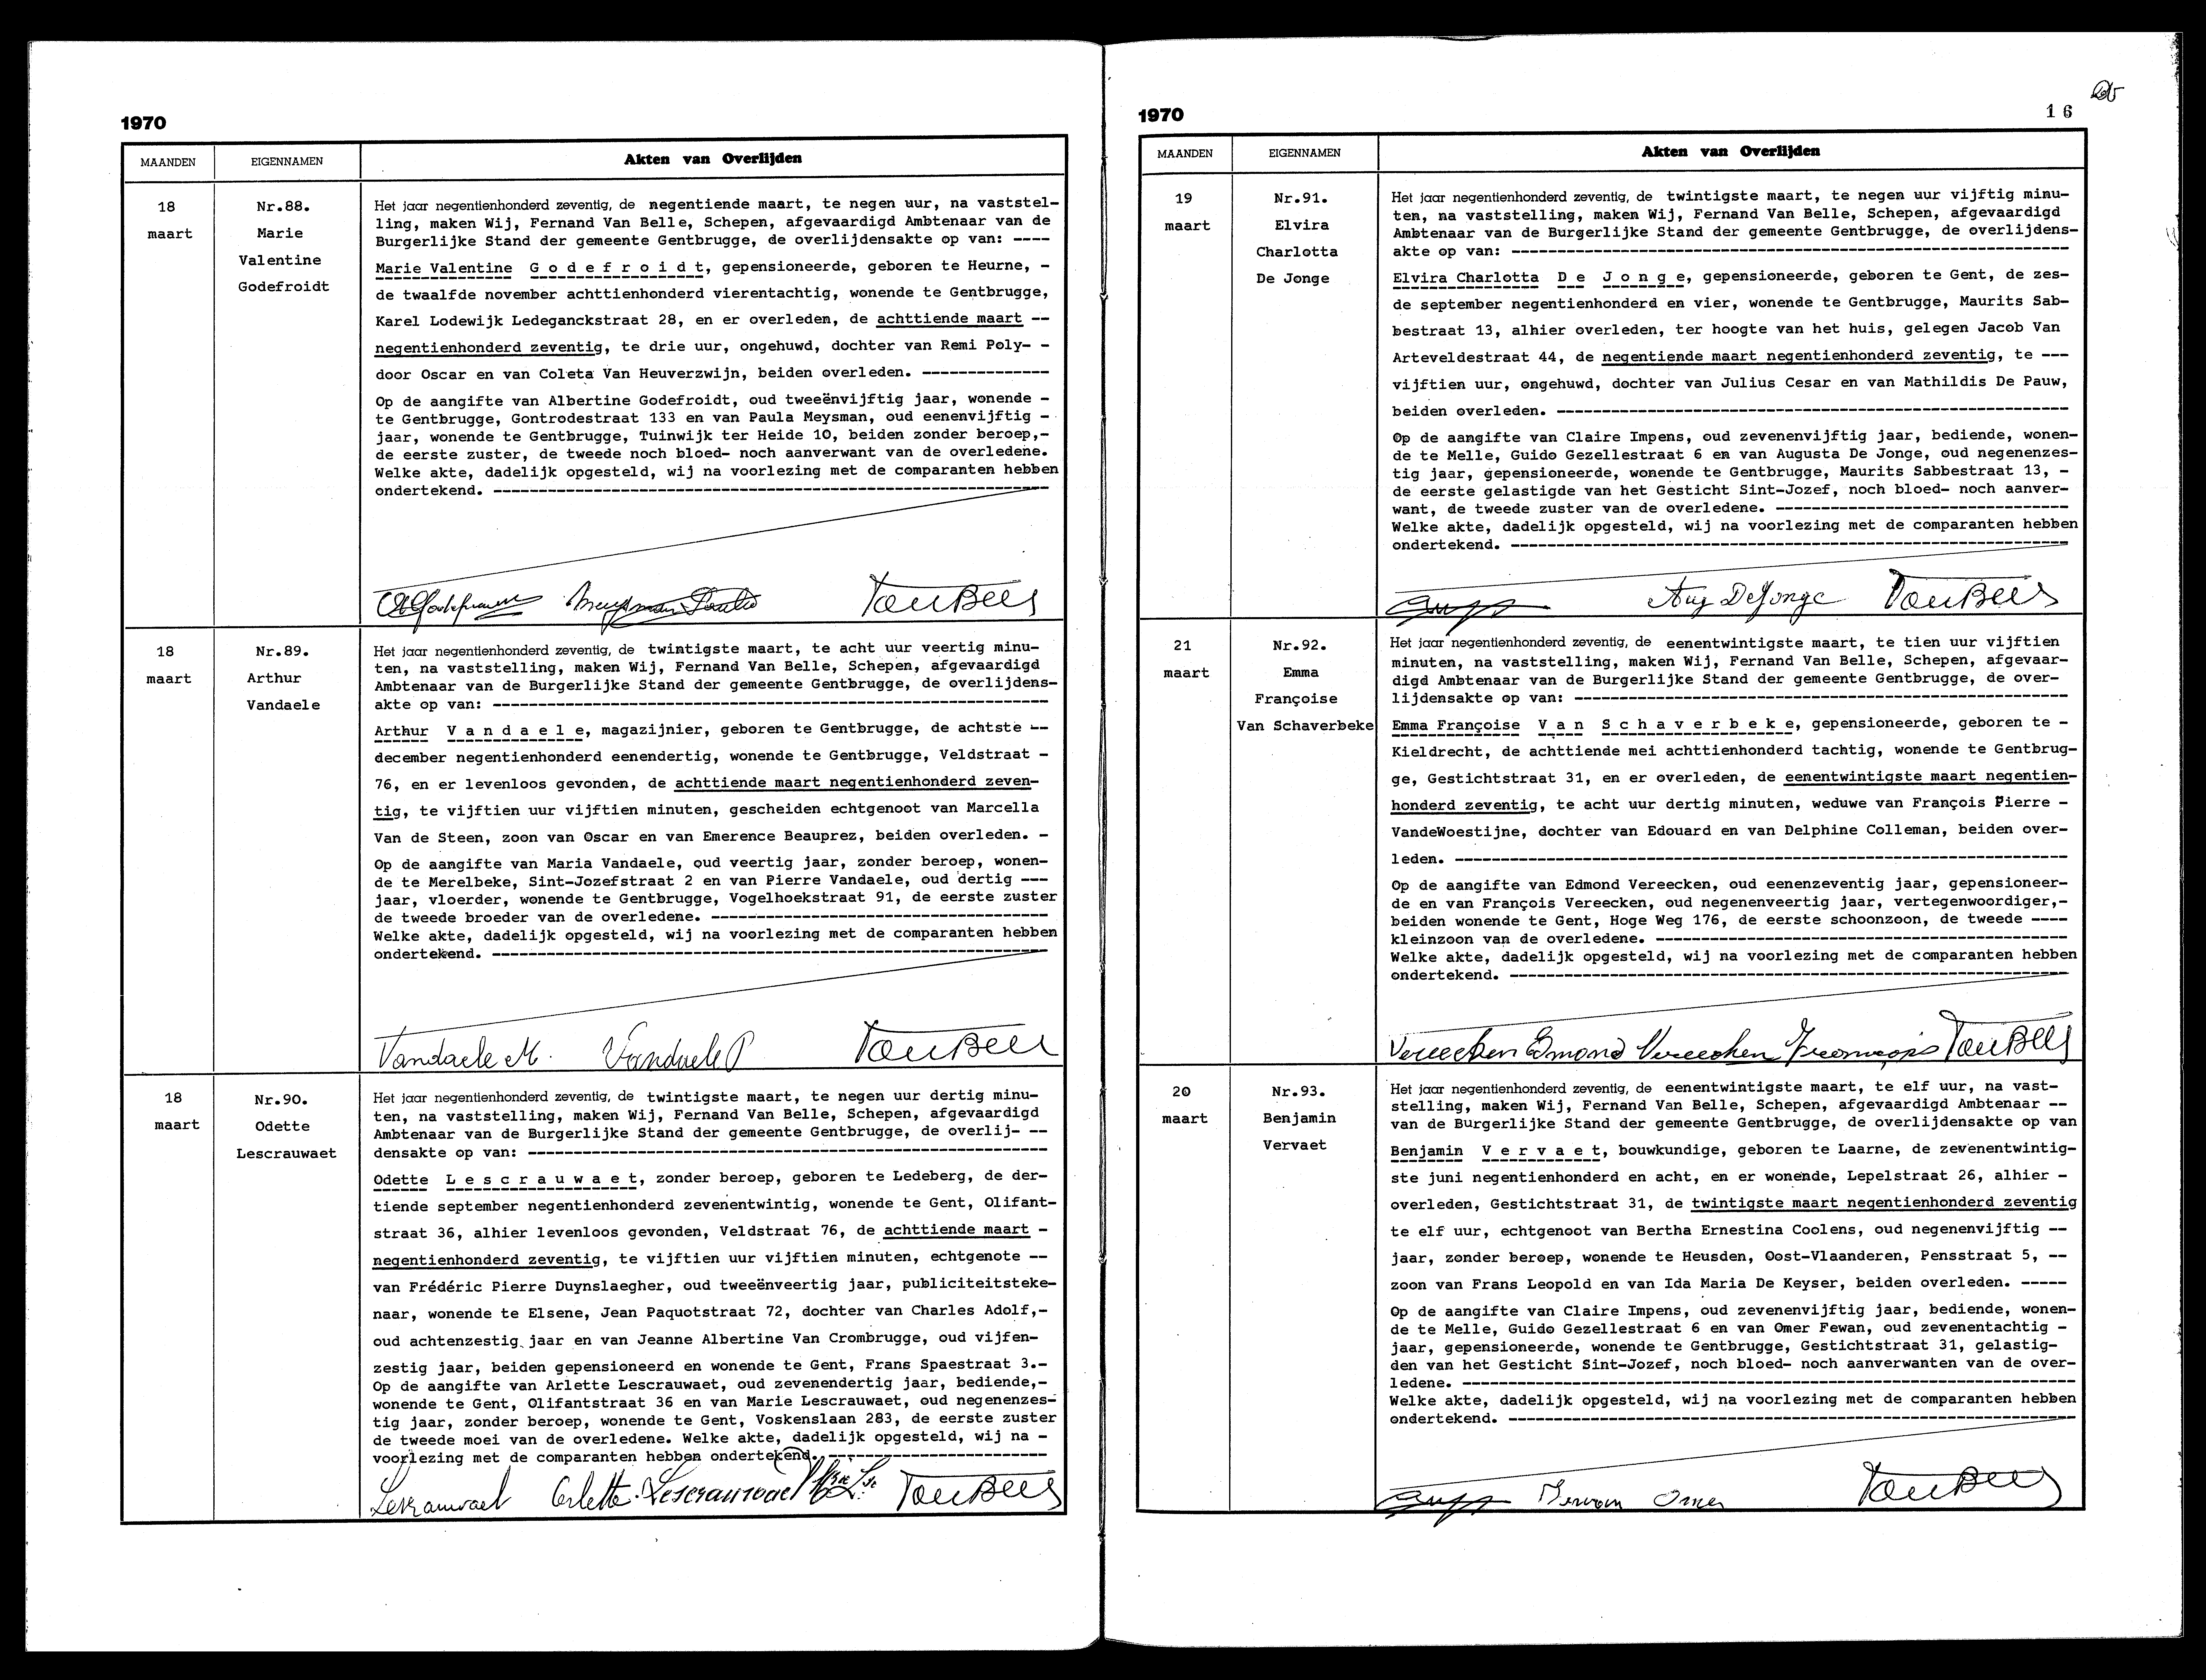 1970
MAANDEN EIGENNAMEN Akten van Overlijden
18
maart
Nr.88.
Marie
Valentine
Godefroidt
Het jaar negentienhonderd zeventig, de negentiende maart, te negen uur, na vaststel-
ling, maken Wij, Fernand Van Belle, Schepen, afgevaardigd Ambtenaar van de
Burgerlijke Stand der gemeente Gentbrugge, de overlijdensakte op van: ----
Marie Valentine G o d e f r o i d t, gepensioneerde, geboren te Heurne, -
de twaalfde november achttienhonderd vierentachtig, wonende te Gentbrugge,
Karel Lodewijk Ledeganckstraat 28, en er overleden, de achttiende maart --
negentienhonderd zeventig, te drie uur, ongehuwd, dochter van Remi Poly- -
door Oscar en van Coleta Van Heuverzwijn, beiden overleden. --------------
Op de aangifte van Albertine Godefroidt, oud tweeënvijftig jaar, wonende -
te Gentbrugge, Gontrodestraat 133 en van Paula Meysman, oud eenenvijftig -
jaar, wonende te Gentbrugge, Tuinwijk ter Heide 10, beiden zonder beroep,-
de eerste zuster, de tweede noch bloed- noch aanverwant van de overledene.
Welke akte, dadelijk opgesteld, wij na voorlezing met de comparanten hebben
ondertekend. --------------------------------------------------------------
VanBelle
18
maart
Nr.89.
Arthur
Vandaele
Het jaar negentienhonderd zeventig, de twintigste maart, te acht uur veertig minu-
ten, na vaststelling, maken Wij, Fernand Van Belle, Schepen, afgevaardigd
Ambtenaar van de Burgerlijke Stand der gemeente Gentbrugge, de overlijdens-
akte op van: --------------------------------------------------------------
Arthur V a n d a e l e, magazijnier, geboren te Gentbrugge, de achtste --
december negentienhonderd eenendertig, wonende te Gentbrugge, Veldstraat -
76, en er levenloos gevonden, de achttiende maart negentienhonderd zeven-
tig, te vijftien uur vijftien minuten, gescheiden echtgenoot van Marcella
Van de Steen, zoon van Oscar en van Emerence Beauprez, beiden overleden. -
Op de aangifte van Maria Vandaele, oud veertig jaar, zonder beroep, wonen-
de te Merelbeke, Sint-Jozefstraat 2 en van Pierre Vandaele, oud dertig ---
jaar, vloerder, wonende te Gentbrugge, Vogelhoekstraat 91, de eerste zuster
de tweede broeder van de overledene. -------------------------------------
Welke akte, dadelijk opgesteld, wij na voorlezing met de comparanten hebben
ondertekend. --------------------------------------------------------------
Vandaele M. Vandaele P VanBelle
18
maart
Nr.90.
Odette
Lescrauwaet
Het jaar negentienhonderd zeventig, de twintigste maart, te negen uur dertig minu-
ten, na vaststelling, maken Wij, Fernand Van Belle, Schepen, afgevaardigd
Ambtenaar van de Burgerlijke Stand der gemeente Gentbrugge, de overlij- --
densakte op van: ---------------------------------------------------------
Odette L e s c r a u w a e t, zonder beroep, geboren te Ledeberg, de der-
tiende september negentienhonderd zevenentwintig, wonende te Gent, Olifant-
straat 36, alhier levenloos gevonden, Veldstraat 76, de achttiende maart -
negentienhonderd zeventig, te vijftien uur vijftien minuten, echtgenote --
van Frédéric Pierre Duynslaegher, oud tweeënveertig jaar, publiciteitsteke-
naar, wonende te Elsene, Jean Paquotstraat 72, dochter van Charles Adolf,-
oud achtenzestig jaar en van Jeanne Albertine Van Crombrugge, oud vijfen-
zestig jaar, beiden gepensioneerd en wonende te Gent, Frans Spaestraat 3.-
Op de aangifte van Arlette Lescrauwaet, oud zevenendertig jaar, bediende,-
wonende te Gent, Olifantstraat 36 en van Marie Lescrauwaet, oud negenenzes-
tig jaar, zonder beroep, wonende te Gent, Voskenslaan 283, de eerste zuster
de tweede moei van de overledene. Welke akte, dadelijk opgesteld, wij na -
voorlezing met de comparanten hebben ondertekend. ------------------------
Lescrauwaet Arlette. Lescrauwaet VanBelle
1970
16
MAANDEN EIGENNAMEN Akten van Overlijden
19
maart
Nr.91.
Elvira
Charlotta
De Jonge
Het jaar negentienhonderd zeventig, de twintigste maart, te negen uur vijftig minu-
ten, na vaststelling, maken Wij, Fernand Van Belle, Schepen, afgevaardigd
Ambtenaar van de Burgerlijke Stand der gemeente Gentbrugge, de overlijdens-
akte op van: --------------------------------------------------------------
Elvira Charlotta D e J o n g e, gepensioneerde, geboren te Gent, de zes-
de september negentienhonderd en vier, wonende te Gentbrugge, Maurits Sab-
bestraat 13, alhier overleden, ter hoogte van het huis, gelegen Jacob Van
Arteveldestraat 44, de negentiende maart negentienhonderd zeventig, te ---
vijftien uur, ongehuwd, dochter van Julius Cesar en van Mathildis De Pauw,
beiden overleden. ---------------------------------------------------------
Op de aangifte van Claire Impens, oud zevenenvijftig jaar, bediende, wonen-
de te Melle, Guido Gezellestraat 6 en van Augusta De Jonge, oud negenenzes-
tig jaar, gepensioneerde, wonende te Gentbrugge, Maurits Sabbestraat 13, -
de eerste gelastigde van het Gesticht Sint-Jozef, noch bloed- noch aanver-
want, de tweede zuster van de overledene. --------------------------------
Welke akte, dadelijk opgesteld, wij na voorlezing met de comparanten hebben
ondertekend. --------------------------------------------------------------
Aug DeJonge VanBelle
21
maart
Nr.92.
Emma
Françoise
Van Schaverbeke
Het jaar negentienhonderd zeventig, de eenentwintigste maart, te tien uur vijftien
minuten, na vaststelling, maken Wij, Fernand Van Belle, Schepen, afgevaar-
digd Ambtenaar van de Burgerlijke Stand der gemeente Gentbrugge, de over-
lijdensakte op van: -------------------------------------------------------
Emma Françoise V a n S c h a v e r b e k e, gepensioneerde, geboren te -
Kieldrecht, de achttiende mei achttienhonderd tachtig, wonende te Gentbrug-
ge, Gestichtstraat 31, en er overleden, de eenentwintigste maart negentien-
honderd zeventig, te acht uur dertig minuten, weduwe van François Pierre -
VandeWoestijne, dochter van Edouard en van Delphine Colleman, beiden over-
leden. --------------------------------------------------------------------
Op de aangifte van Edmond Vereecken, oud eenenzeventig jaar, gepensioneer-
de en van François Vereecken, oud negenenveertig jaar, vertegenwoordiger,-
beiden wonende te Gent, Hoge Weg 176, de eerste schoonzoon, de tweede ----
kleinzoon van de overledene. ----------------------------------------------
Welke akte, dadelijk opgesteld, wij na voorlezing met de comparanten hebben
ondertekend. --------------------------------------------------------------
Vereecken Edmond Vereecken François VanBelle
20
maart
Nr.93.
Benjamin
Vervaet
Het jaar negentienhonderd zeventig, de eenentwintigste maart, te elf uur, na vast-
stelling, maken Wij, Fernand Van Belle, Schepen, afgevaardigd Ambtenaar --
van de Burgerlijke Stand der gemeente Gentbrugge, de overlijdensakte op van
Benjamin V e r v a e t, bouwkundige, geboren te Laarne, de zevenentwintig-
ste juni negentienhonderd en acht, en er wonende, Lepelstraat 26, alhier -
overleden, Gestichtstraat 31, de twintigste maart negentienhonderd zeventig
te elf uur, echtgenoot van Bertha Ernestina Coolens, oud negenenvijftig --
jaar, zonder beroep, wonende te Heusden, Oost-Vlaanderen, Pensstraat 5, --
zoon van Frans Leopold en van Ida Maria De Keyser, beiden overleden. -----
Op de aangifte van Claire Impens, oud zevenenvijftig jaar, bediende, wonen-
de te Melle, Guido Gezellestraat 6 en van Omer Fewan, oud zevenentachtig -
jaar, gepensioneerde, wonende te Gentbrugge, Gestichtstraat 31, gelastig-
den van het Gesticht Sint-Jozef, noch bloed- noch aanverwanten van de over-
ledene. -------------------------------------------------------------------
Welke akte, dadelijk opgesteld, wij na voorlezing met de comparanten hebben
ondertekend. --------------------------------------------------------------
Omer VanBelle